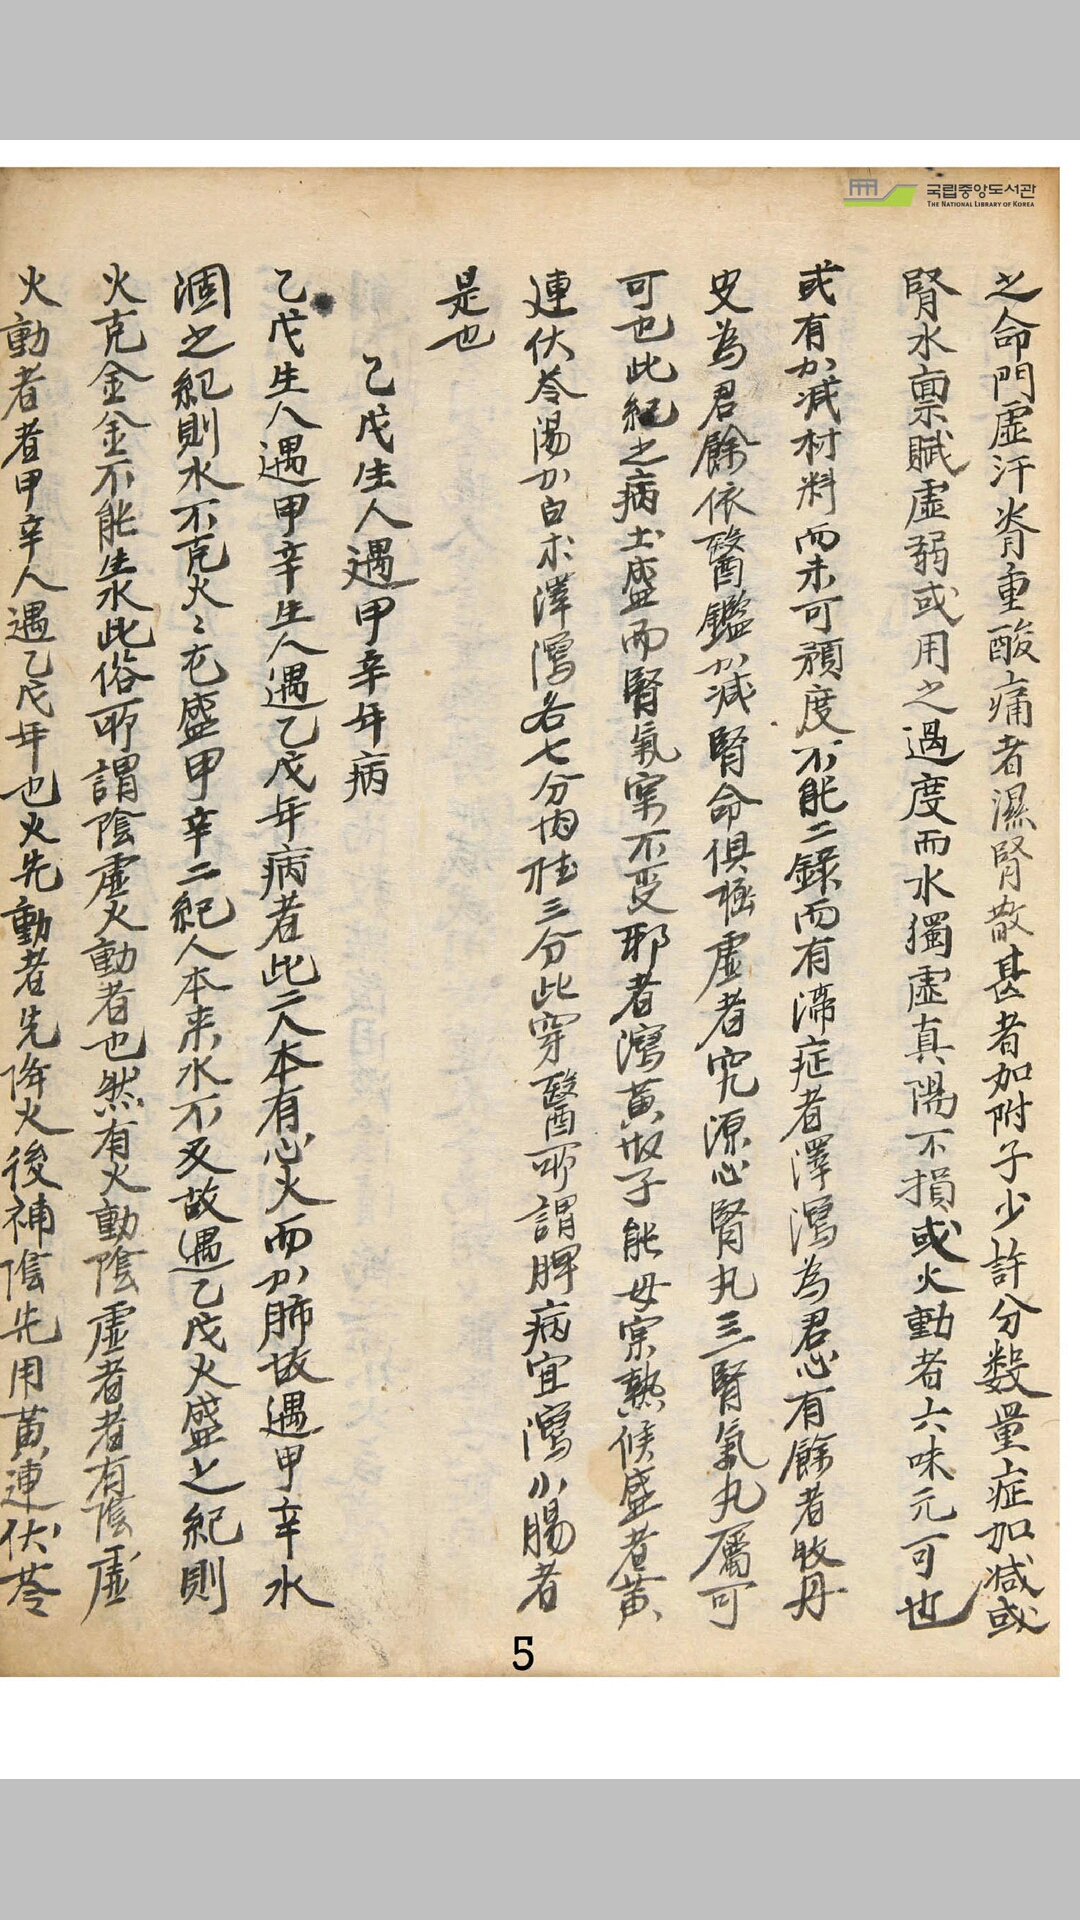 국립중앙도서관
THE NATIONAL LIBRARY OF KOREA
之命門虛汗脊重酸痛者濕腎散甚者加附子少許分数量症加减或
腎水禀賦虛弱或用之過度而水獨虛真陽不損或火動者六味元可也
或有加减材料而未可預度不能二錄而有滯症者澤瀉為君心有餘者牧丹
皮為君餘依醫鑑加减腎命俱極虛者究源心腎丸三腎氣丸屬可
可也此紀之病土盛而腎氣宗不受邪者瀉黃散子能母宗熱候盛者黃
連伏苓湯加白朮澤瀉各七分肉桂三分此穿醫所謂脾病宜瀉小腸者
是也
乙戊生人遇甲辛年病
乙戊生人遇甲辛生人遇乙戊年病者此二人本有心火而加肺故遇甲辛水
涸之紀則水不克火〻屯盛甲辛二紀人本来水不及故遇乙戊火盛之紀則
火克金金不能生水此俗所謂陰虛火動者也然有火動陰虛者者有陰虛
火動者者甲辛人遇乙戊年也火先動者先降火後補陰先用黃連伏苓
5